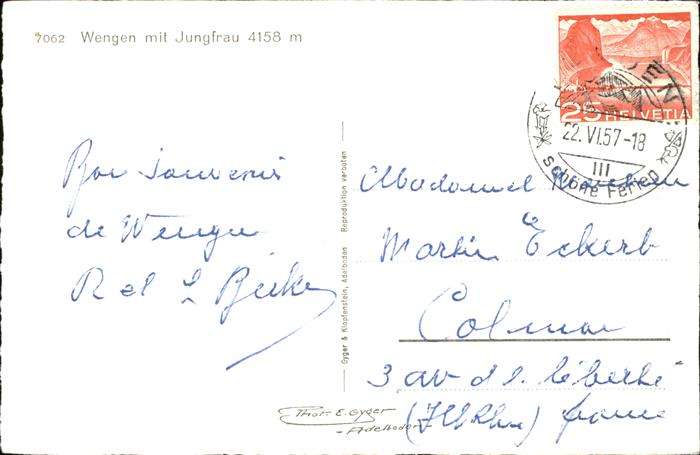 7062 Wengen mit Jungfrau 4158 m
25 HELVETIA
WENGEN
22.VI.57-18
III
schöne Ferien
Bon souvenir
de Wengen
R et L
Madame
Martin Eckerb
Colmar
3 av de la liberté
(Ht Rhin) france
Gyger & Klopfenstein, Adelboden Reproduktion verboten
Phot. E. Gyger
- Adelboden -